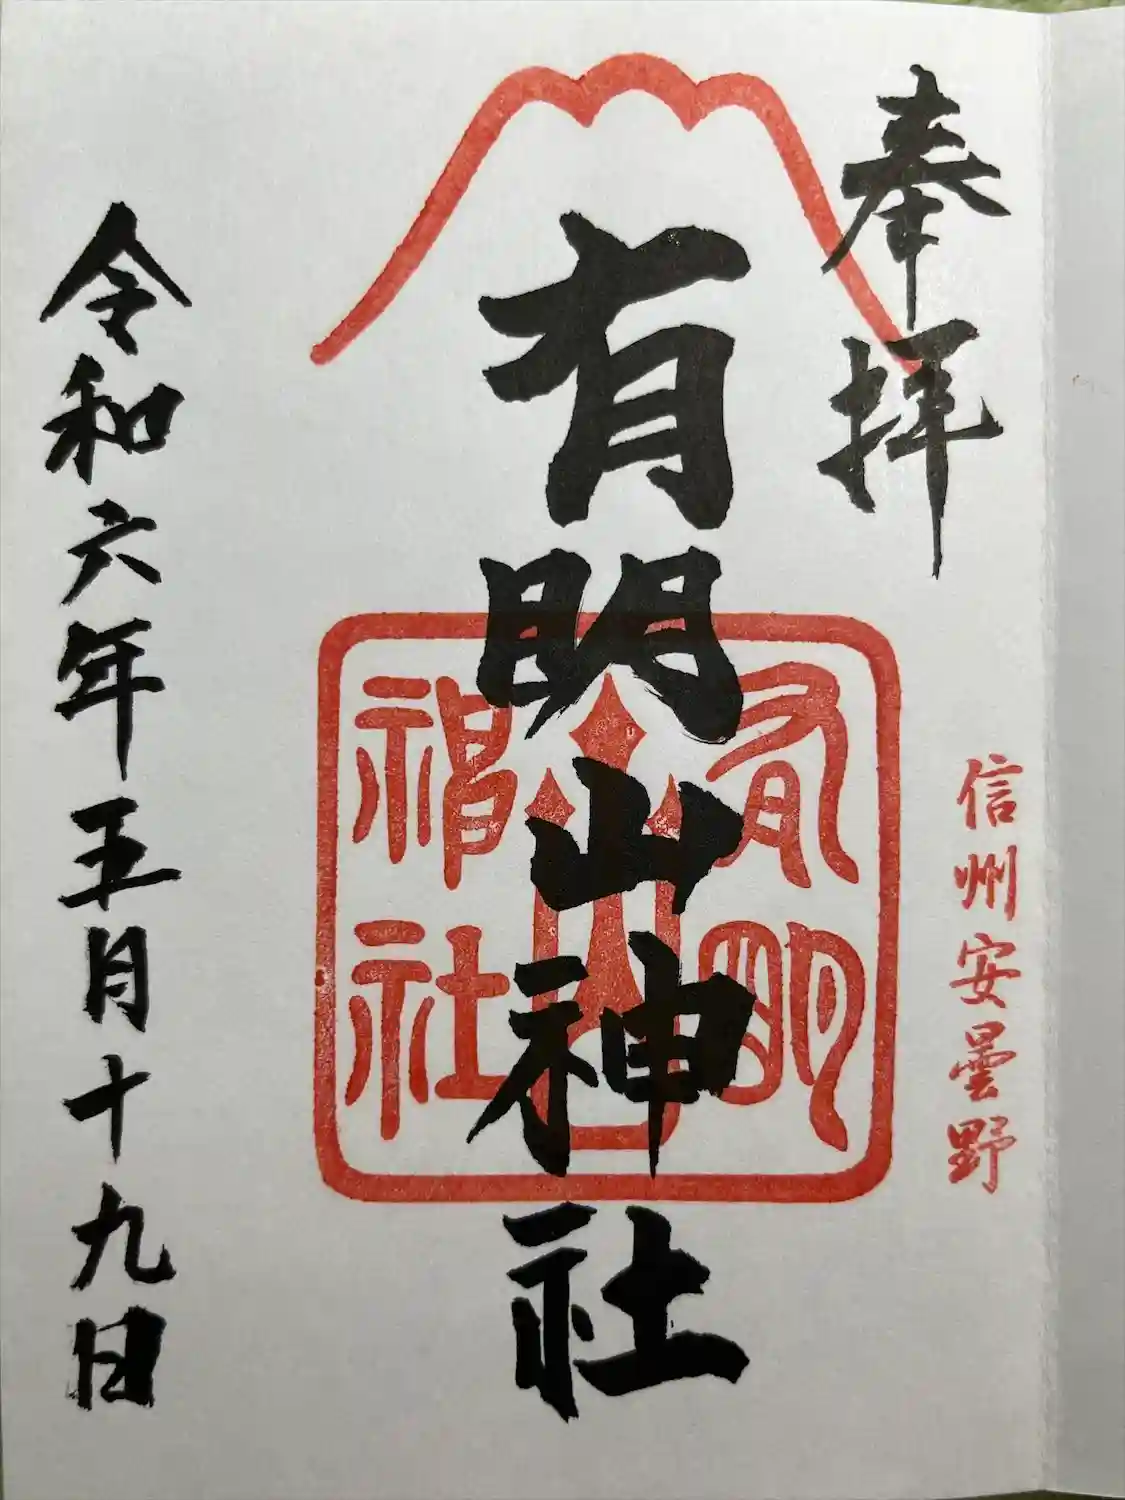 奉拝
信州安曇野
有明山神社
有明山神社
令和六年五月十九日